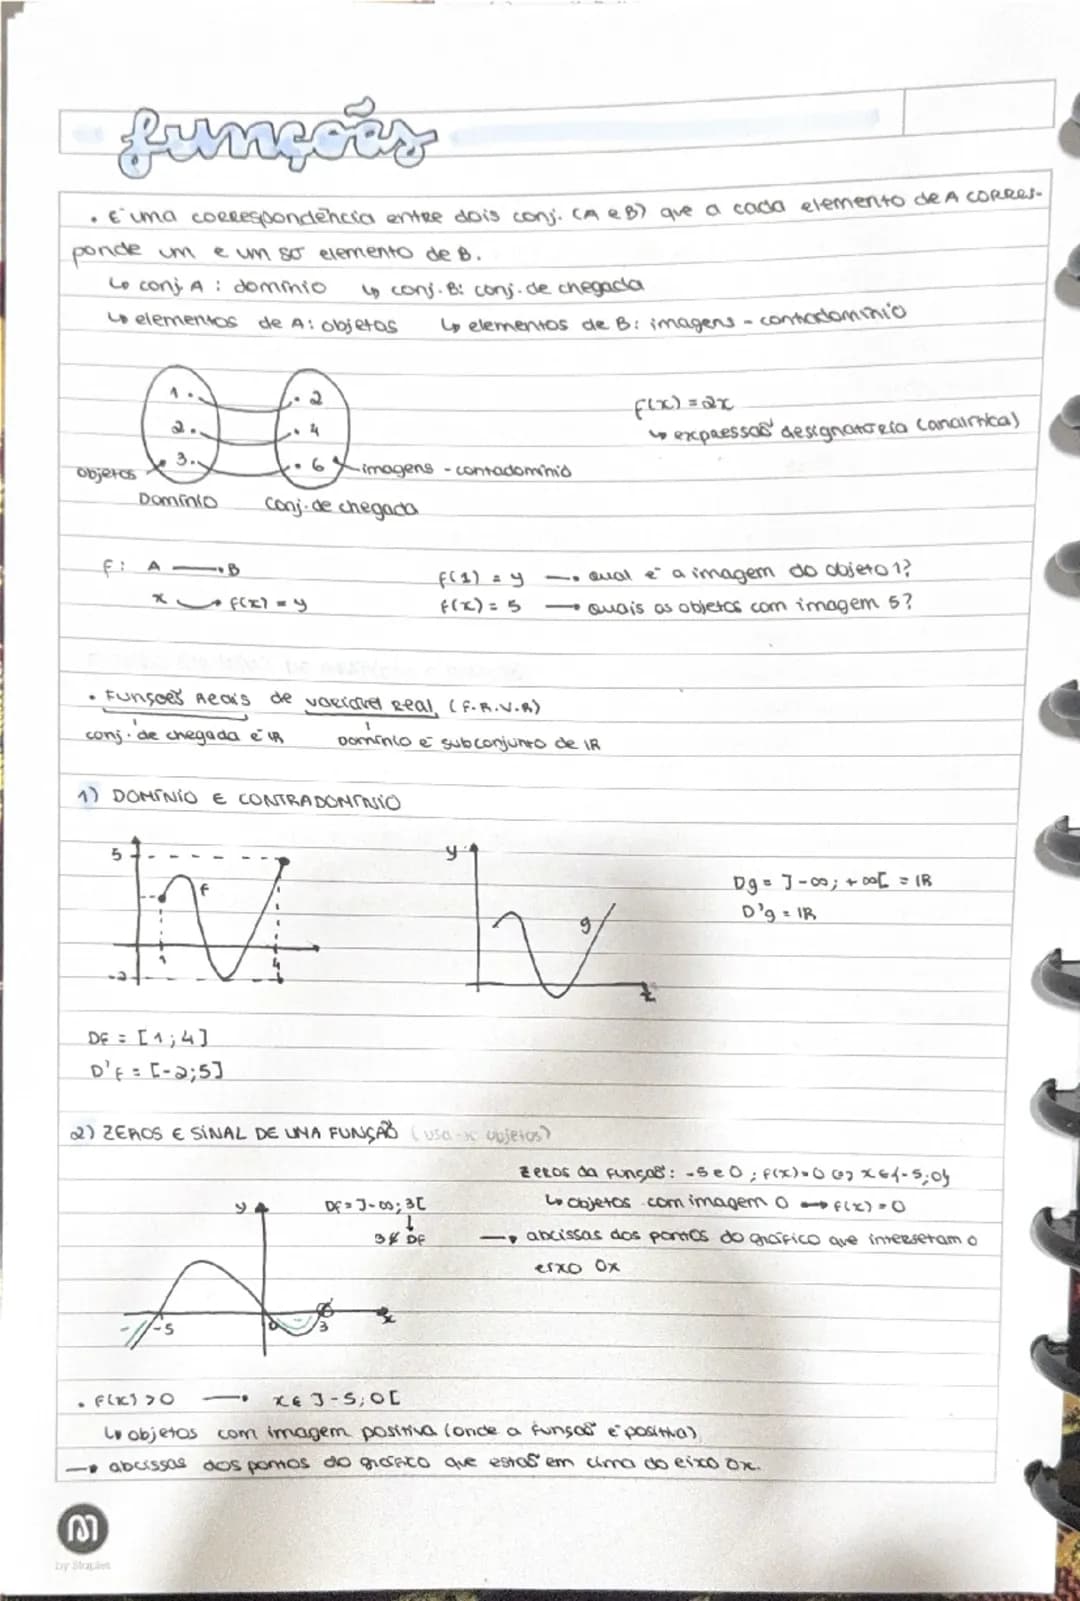 funções
• É uma correspondência entre dois conj. (A e B) que a cada elemento de A corres-
ponde um e um só elemento de B.
↳ conj. A : domínio ↳ conj. B: conj. de chegada
↳ elementos de A: objetos ↳ elementos de B: imagens - contradomínio
1 . . 2
2 . . 4
3 . . 6
f(x) = 2x
↳ expressão designatória (analítica)
objetos
imagens - contradomínio
Domínio conj. de chegada
f: A → B f(1) = y → qual é a imagem do objeto 1?
x → f(x) = y f(x) = 5 → quais os objetos com imagem 5?
• Funções Reais de variável real (F.R.V.R)
conj. de chegada é IR Domínio é subconjunto de IR
1) DOMÍNIO E CONTRADOMÍNIO
5
f
1
4
-2
y
g
x
Dg = ]-∞; +∞[ = IR
D'g = IR
Df = [1; 4]
D'f = [-2;5]
2) ZEROS E SINAL DE UMA FUNÇÃO (usa-se objetos)
zeros da função: -5 e 0 ; f(x)=0 <=> x ∈ {-5;0}
↳ objetos com imagem 0 → f(x) = 0
→ abcissas dos pontos do gráfico que intersetam o
eixo Ox
y
Df = ]-∞; 3[
↓
3 ∉ Df
-5
0
3
x
• f(x) > 0 → x ∈ ]-5; 0[
↳ objetos com imagem positiva (onde a função é positiva)
→ abcissas dos pontos do gráfico que estão em cima do eixo Ox.
by Staples